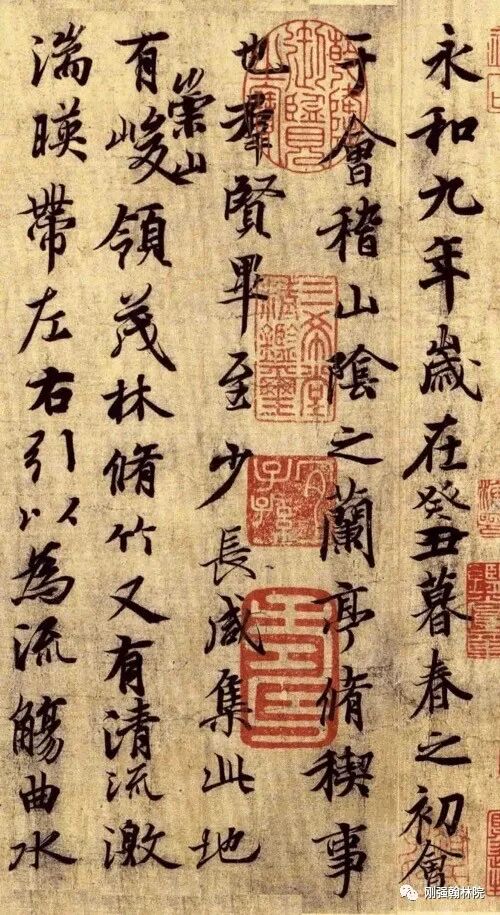 永和九年歲在癸丑暮春之初會
于會稽山陰之蘭亭脩稧事
也羣賢畢至少長咸集此地
有崇山峻領茂林脩竹又有清流激
湍暎帶左右引以為流觴曲水
乾隆御覽之寶
三希堂精鑑璽
宜子孫
刚强翰林院